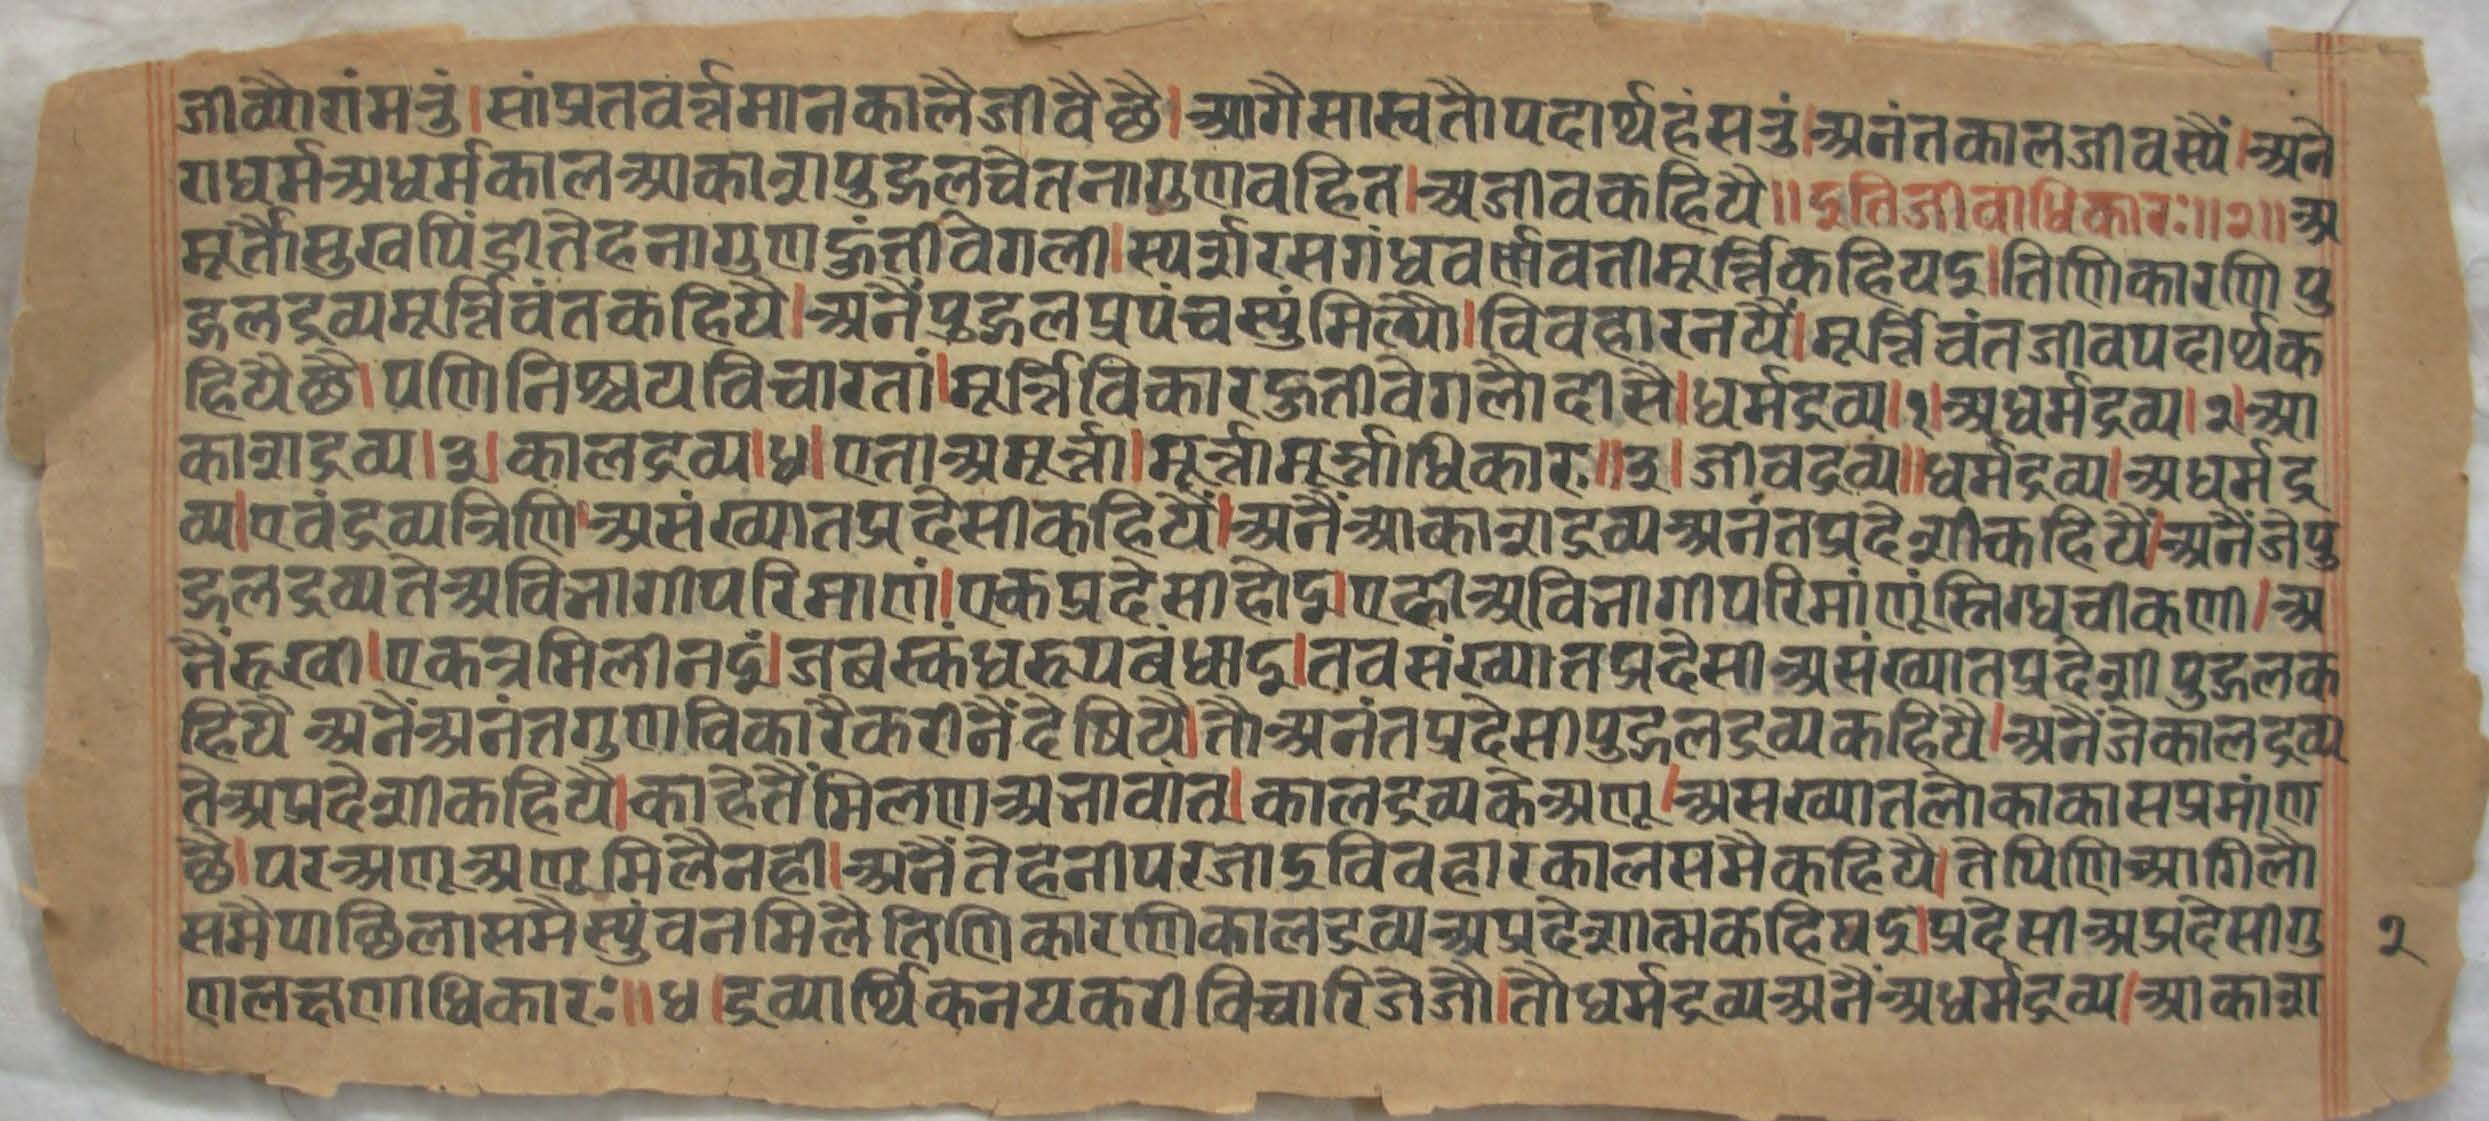 जीव्यौ रांमचुं। सांप्रत वर्त्तमान कालै जीवै छै। आगै सास्वतौ पदार्थ हंस चुं। अनंत काल जीवस्यैं। अनै
रा धर्म अधर्म काल आकाश पुद्गल चेतना गुण वहित। अजीव कहियै॥ इति जीवाधिकारः॥२॥ अ
मूर्तौ सुख पिंडी तेहना गुण हुंती वेगली। स्पर्श रस गंध वर्ण वती मूर्त्ति कहियइ। तिणि कारणि पु
द्गल द्रव्य मूर्त्तिवंत कहियै। अनैं पुद्गल प्रपंच स्युं मिल्यौ। विवहार नयैं। मूर्त्तिवंत जीव पदार्थ क
हियै छै। पणि निश्चय विचारतां। मूर्त्ति विकार हुती वेगलौ दीसै। धर्म द्रव्य।१। अधर्म द्रव्य।२। आ
काश द्रव्य।३। काल द्रव्य।४। एता अमूर्त्ती। मूर्त्तीमूर्त्तीधिकारः॥३। जीव द्रव्य॥ धर्म द्रव्य। अधर्म द्र
व्य। एवं द्रव्य त्रिणि। असंख्यात प्रदेसी कहियैं। अनैं आकाश द्रव्य अनंत प्रदेशी कहियैं। अनैं जे पु
द्गल द्रव्य ते अविभागी परिमाणं। एक प्रदेसी होइ। एही अविभागी परिमांणूं स्निग्ध चीकणी। अ
नैं रूखी। एकत्र मिलीनइं। जब स्कंध रूप बंधाइ। तव संख्यात प्रदेसी असंख्यात प्रदेशी पुद्गल क
हियै अनैं अनंत गुण विकारै करीनैं देषियै। तौ अनंत प्रदेसी पुद्गल द्रव्य कहियै। अनैं जे काल द्रव्य
ते अप्रदेशी कहियै। काहे तैं मिलण अभावात्। काल द्रव्य के अणू। असख्यात लोकाकास प्रमांण
छै। पर अणू अणू मिलै नही। अनैं तेहनी परजाइ विवहार काल समै कहियै। ते पिणि आगिलौ
समै पाछिला समै स्युं व न मिलै तिणि कारणि काल द्रव्य अप्रदेशात्म कहियइ। प्रदेसी अप्रदेसी गु
ण लक्षणाधिकारः॥४। द्रव्यार्थिक नय करी विचारिजै जौ। तौ धर्म द्रव्य अनैं अधर्म द्रव्य। आकाश
२